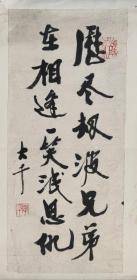 历尽劫波兄弟
在相逢一笑泯恩仇
大千